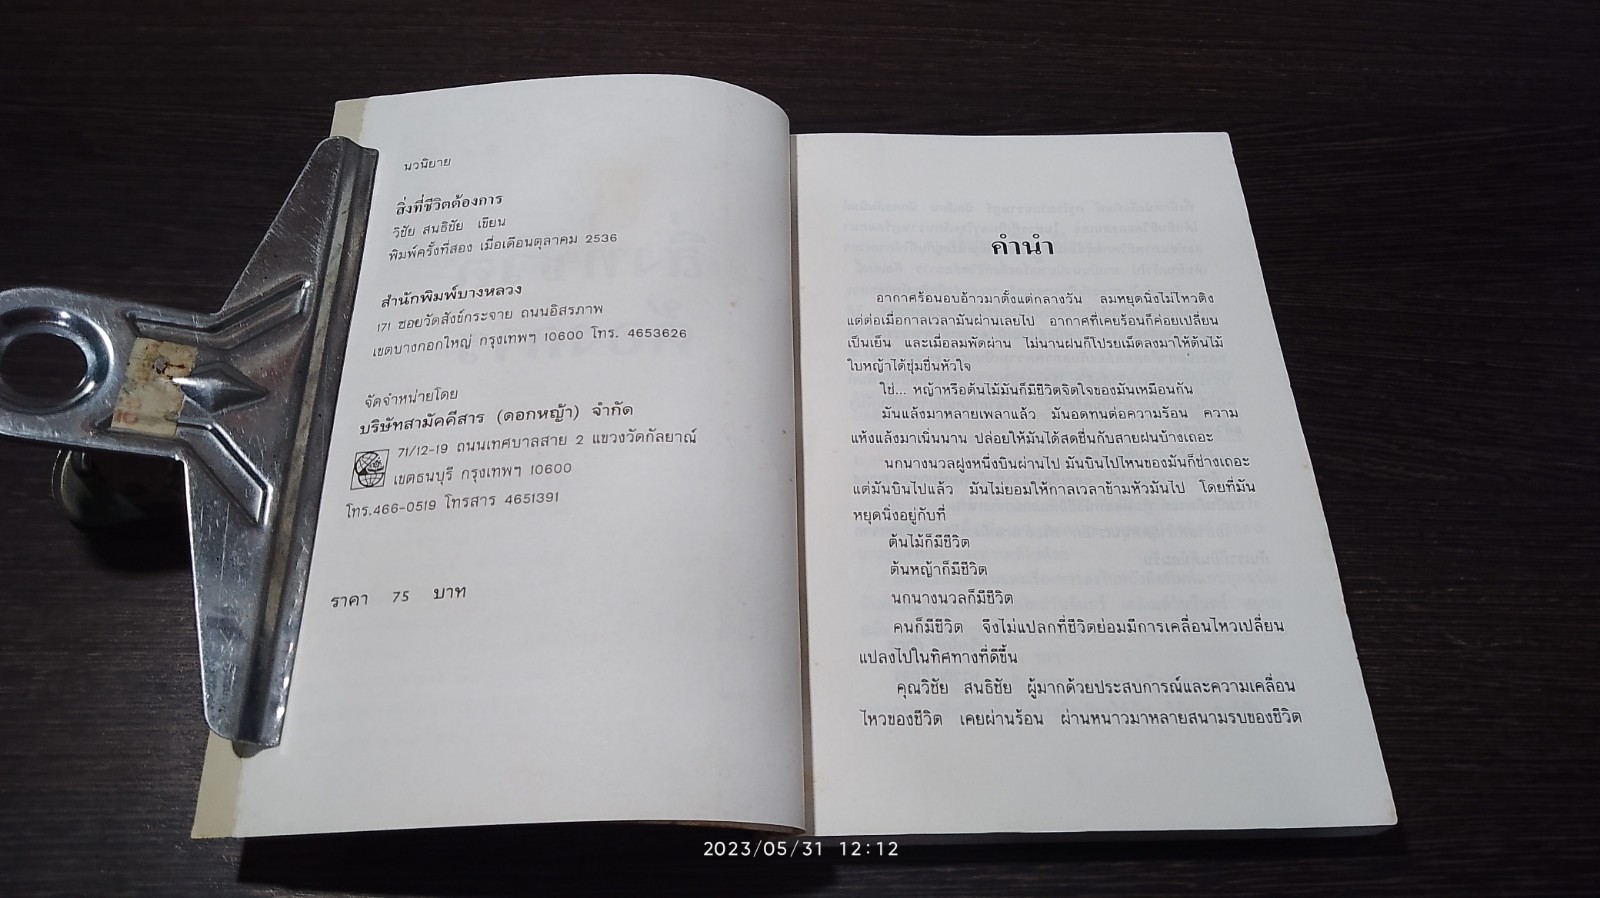 นวนิยาย
สิ่งที่ชีวิตต้องการ
วิชัย สนธิชัย เขียน
พิมพ์ครั้งที่สอง เมื่อเดือนตุลาคม 2536
สำนักพิมพ์บางหลวง
171 ซอยวัดสังข์กระจาย ถนนอิสรภาพ
เขตบางกอกใหญ่ กรุงเทพฯ 10600 โทร. 4653626
จัดจำหน่ายโดย
บริษัทสามัคคีสาร (ดอกหญ้า) จำกัด
71/12-19 ถนนเทศบาลสาย 2 แขวงวัดกัลยาณ์
เขตธนบุรี กรุงเทพฯ 10600
โทร.466-0519 โทรสาร 4651391
ราคา 75 บาท
คำนำ
อากาศร้อนอบอ้าวมาตั้งแต่กลางวัน ลมหยุดนิ่งไม่ไหวติง
แต่ต่อเมื่อกาลเวลามันผ่านเลยไป อากาศที่เคยร้อนก็ค่อยเปลี่ยน
เป็นเย็น และเมื่อลมพัดผ่าน ไม่นานฝนก็โปรยเม็ดลงมาให้ต้นไม้
ใบหญ้าได้ชุ่มชื่นหัวใจ
ใช่... หญ้าหรือต้นไม้มันก็มีชีวิตจิตใจของมันเหมือนกัน
มันแล้งมาหลายเพลาแล้ว มันอดทนต่อความร้อน ความ
แห้งแล้งมาเนิ่นนาน ปล่อยให้มันได้สดชื่นกับสายฝนบ้างเถอะ
นกนางนวลฝูงหนึ่งบินผ่านไป มันบินไปไหนของมันก็ช่างเถอะ
แต่มันบินไปแล้ว มันไม่ยอมให้กาลเวลาข้ามหัวมันไป โดยที่มัน
หยุดนิ่งอยู่กับที่
ต้นไม้ก็มีชีวิต
ต้นหญ้าก็มีชีวิต
นกนางนวลก็มีชีวิต
คนก็มีชีวิต จึงไม่แปลกที่ชีวิตย่อมมีการเคลื่อนไหวเปลี่ยน
แปลงไปในทิศทางที่ดีขึ้น
คุณวิชัย สนธิชัย ผู้มากด้วยประสบการณ์และความเคลื่อน
ไหวของชีวิต เคยผ่านร้อน ผ่านหนาวมาหลายสนามรบของชีวิต
2023/05/31 12:12